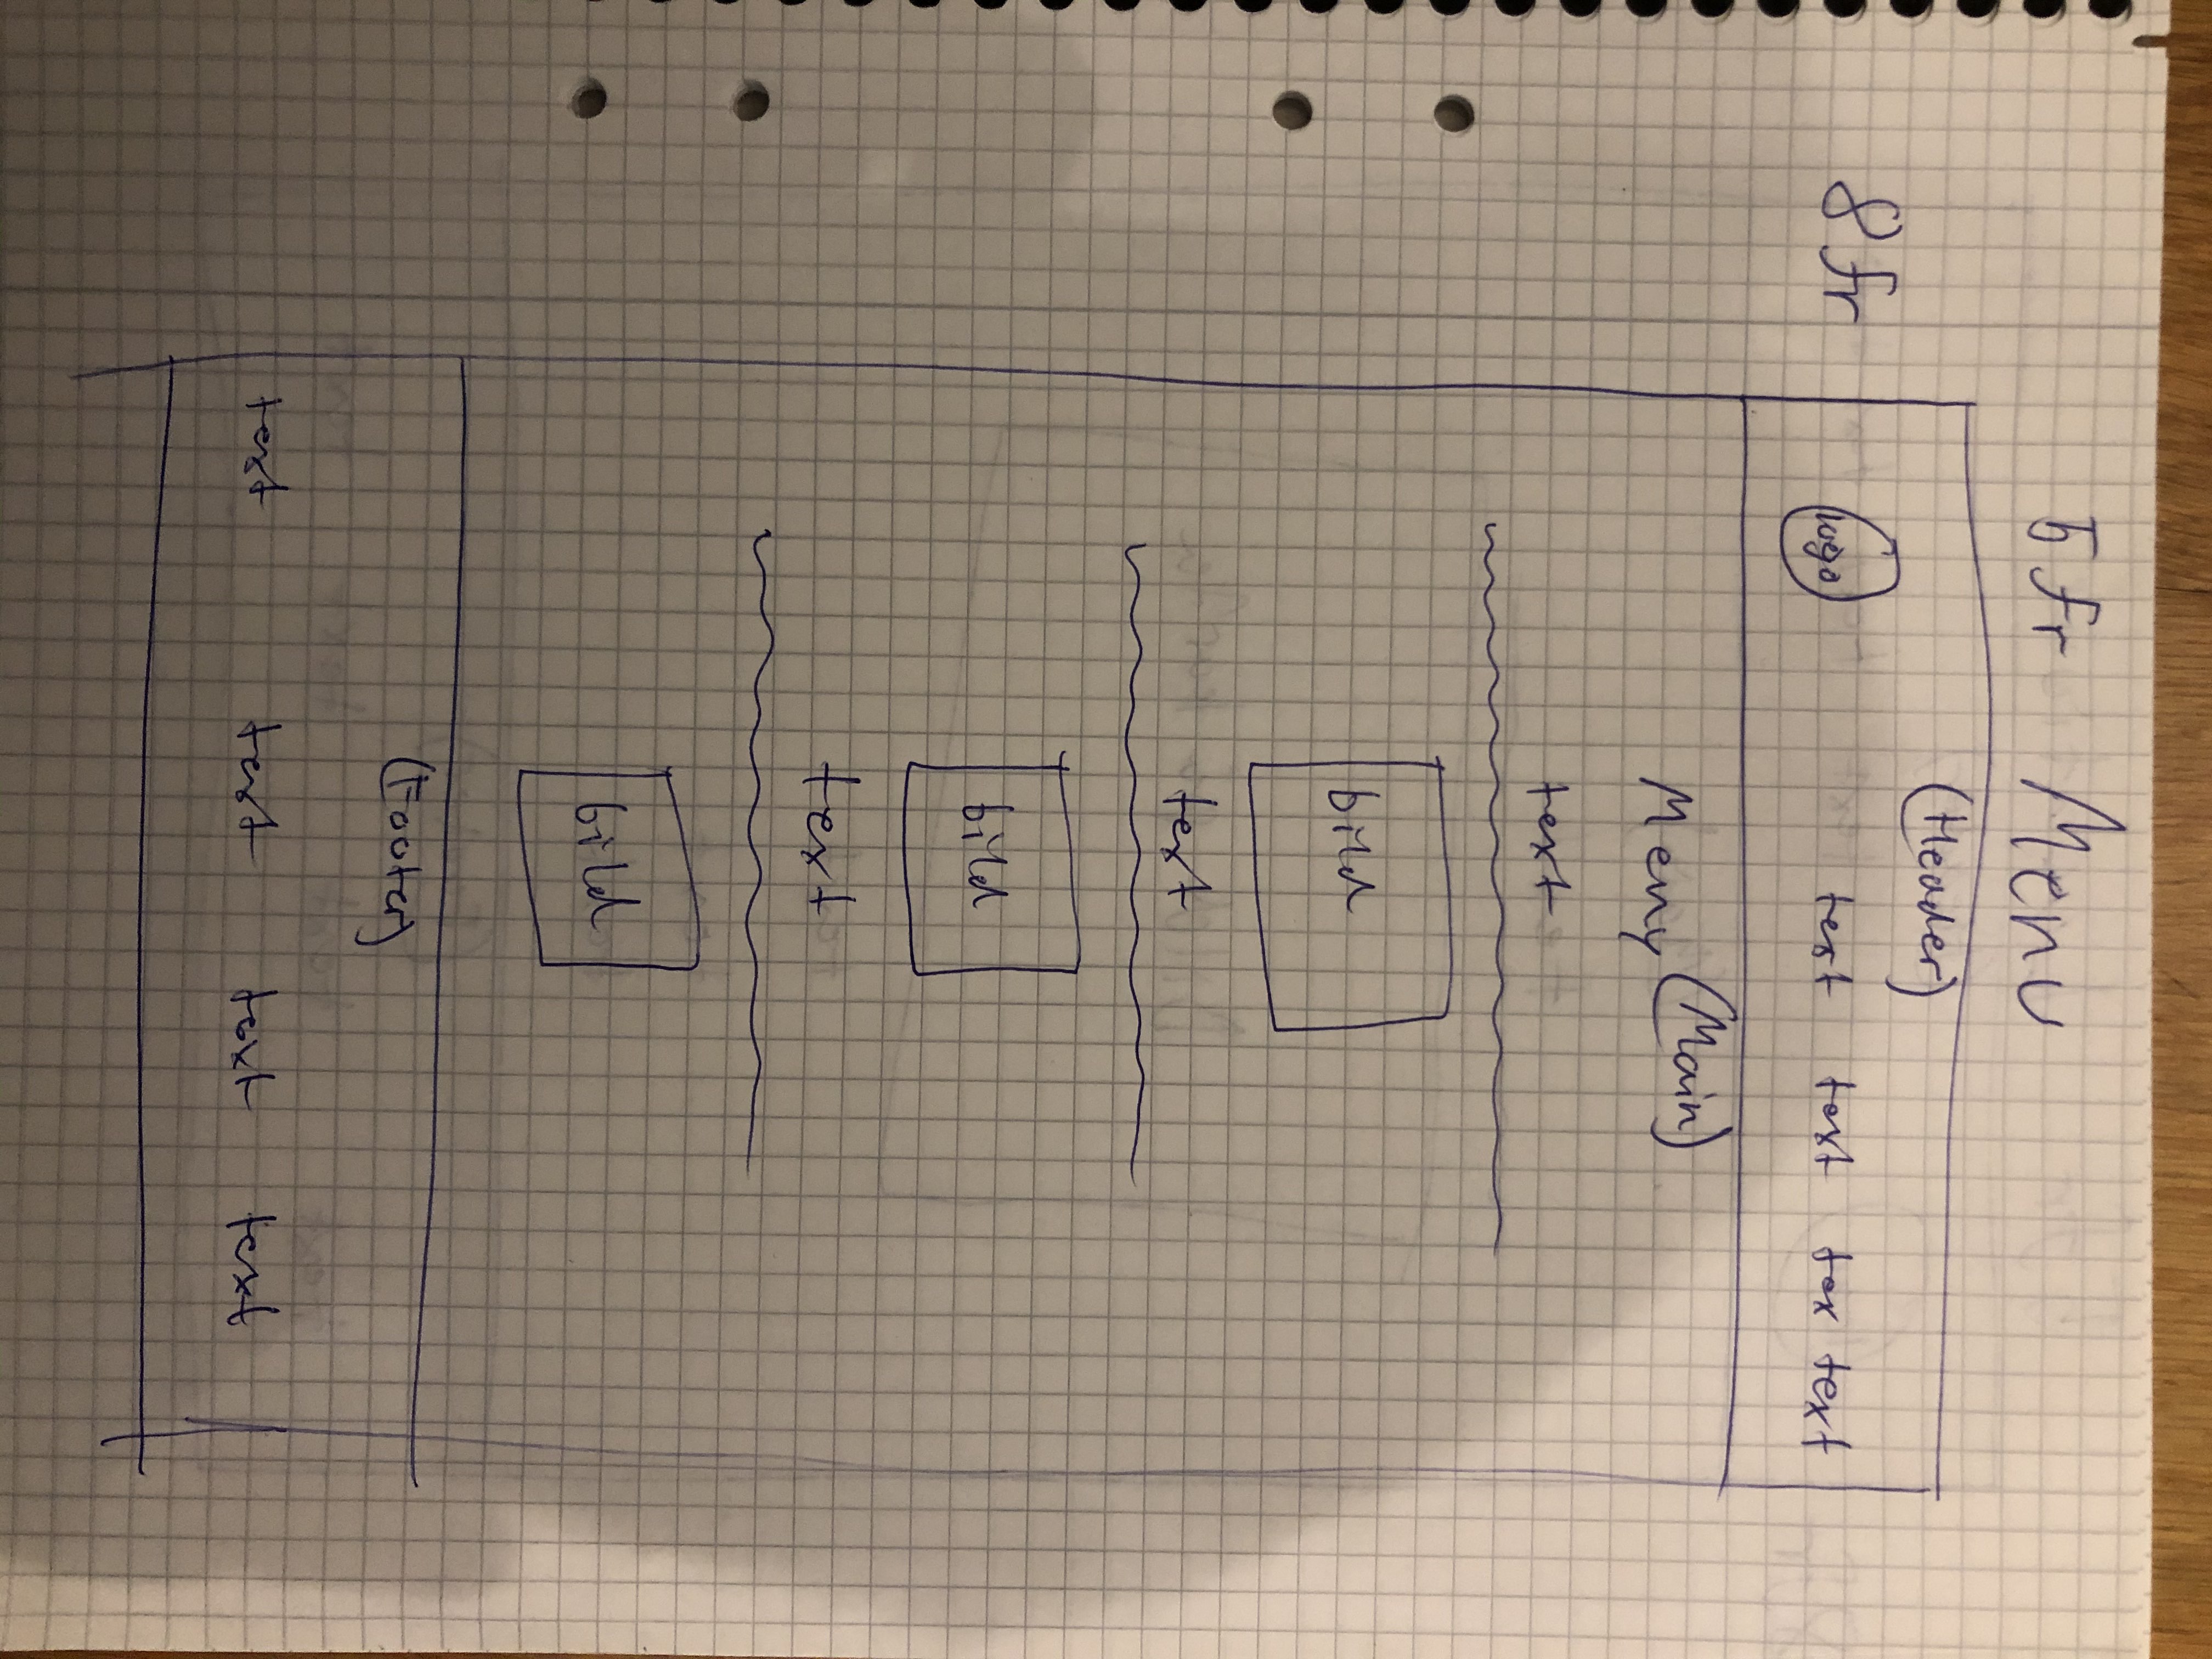 5 fr Menu
8 fr
(Header)
logo text text tex text
Meny (Main)
text
bild
text
bild
text
bild
(Footer)
text text text text